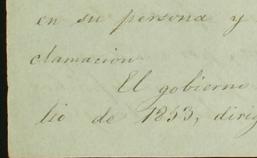 en su persona y
clamacion
El gobierno
lio de 1853, dirig